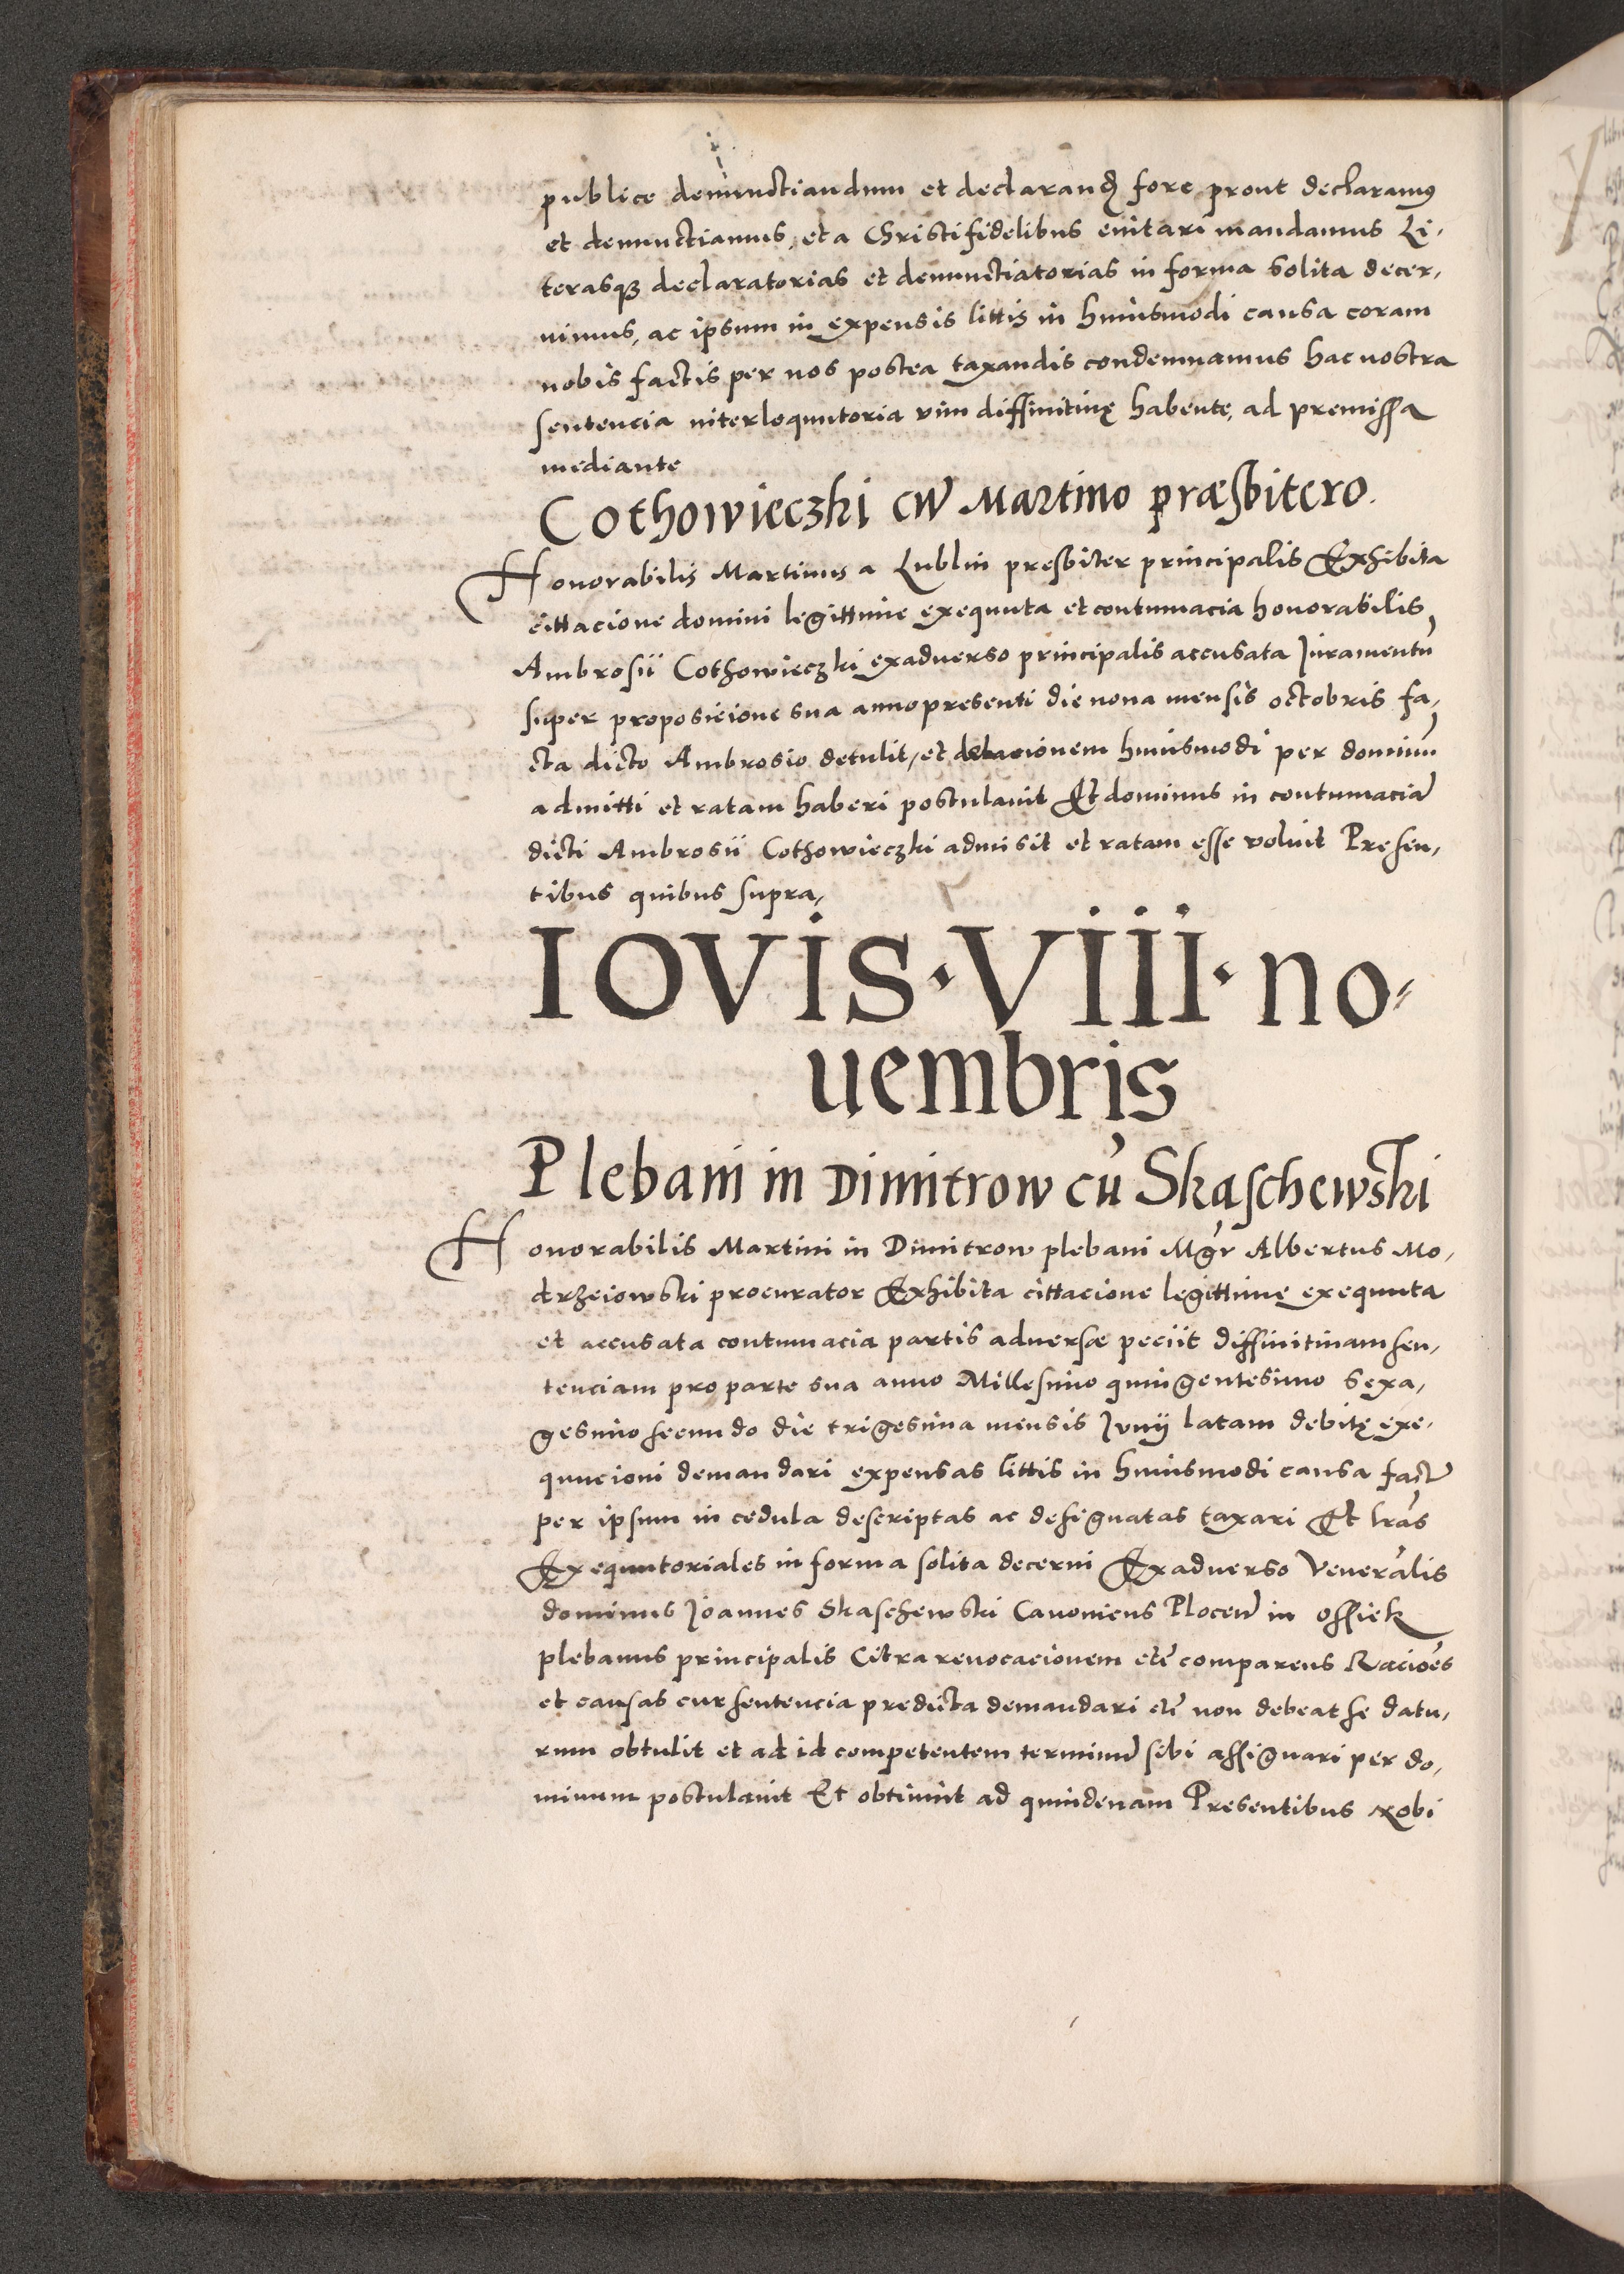 publice denunctiandum et declarand fore prout declaramus
et denunctiamus, et a Christifidelibus euitari mandamus Li-
terasqȝ declaratorias et denunctiatorias in forma solita decer-
nimus, ac ipsum in expensis littis in huiusmodi causa coram
nobis factis per nos postea taxandis condemnamus hac nostra
sentencia interloquutoria vim diffinitiuę habente, ad premissa
mediante
Cothowieczki cum Martino præsbitero.
Honorabilis Martinus a Lublin presbiter principalis Exhibita
cittacione domini legittime exequuta et contumacia honorabilis
Ambrosii Cothowieczki exaduerso principalis accusata Juramentū
super proposicione sua anno presenti die nona mensis octobris fa-
cta dicto Ambrosio detulit, et delacionem huiusmodi per dominū
admitti et ratam haberi postulauit Et dominus in contumaciā
dicti Ambrosii Cothowieczki admisit et ratam esse voluit Presen-
tibus quibus supra,
IOVIS · VIII · no-
uembris
Plebani in Dimitrow cū Skaschewski
Honorabilis Martini in Dimitrow plebani Mgr Albertus Mo-
drzeiowski procurator Exhibita cittacione legittimę exequuta
et accusata contumacia partis aduersæ peciit diffinitiuam sen-
tenciam pro parte sua anno Millesimo quingentesimo sexa-
gesimo secundo die trigesima mensis Junij latam debitę exe-
quucioni demandari expensas littis in huiusmodi causa fact
per ipsum in cedula descriptas ac designatas taxari Et lras
Exequutoriales in forma solita decerni Exaduerso Veneralis
dominus Joannes Skaschewski Canonicus Plocen in ossiek
plebanus principalis Citra reuocacionem etc comparens Racioēs
et causas cur sentencia predicta demandari etc non debeat se datu-
rum obtulit et ad id competentem terminū sibi assignari per do-
minum postulauit Et obtinuit ad quindenam Presentibus